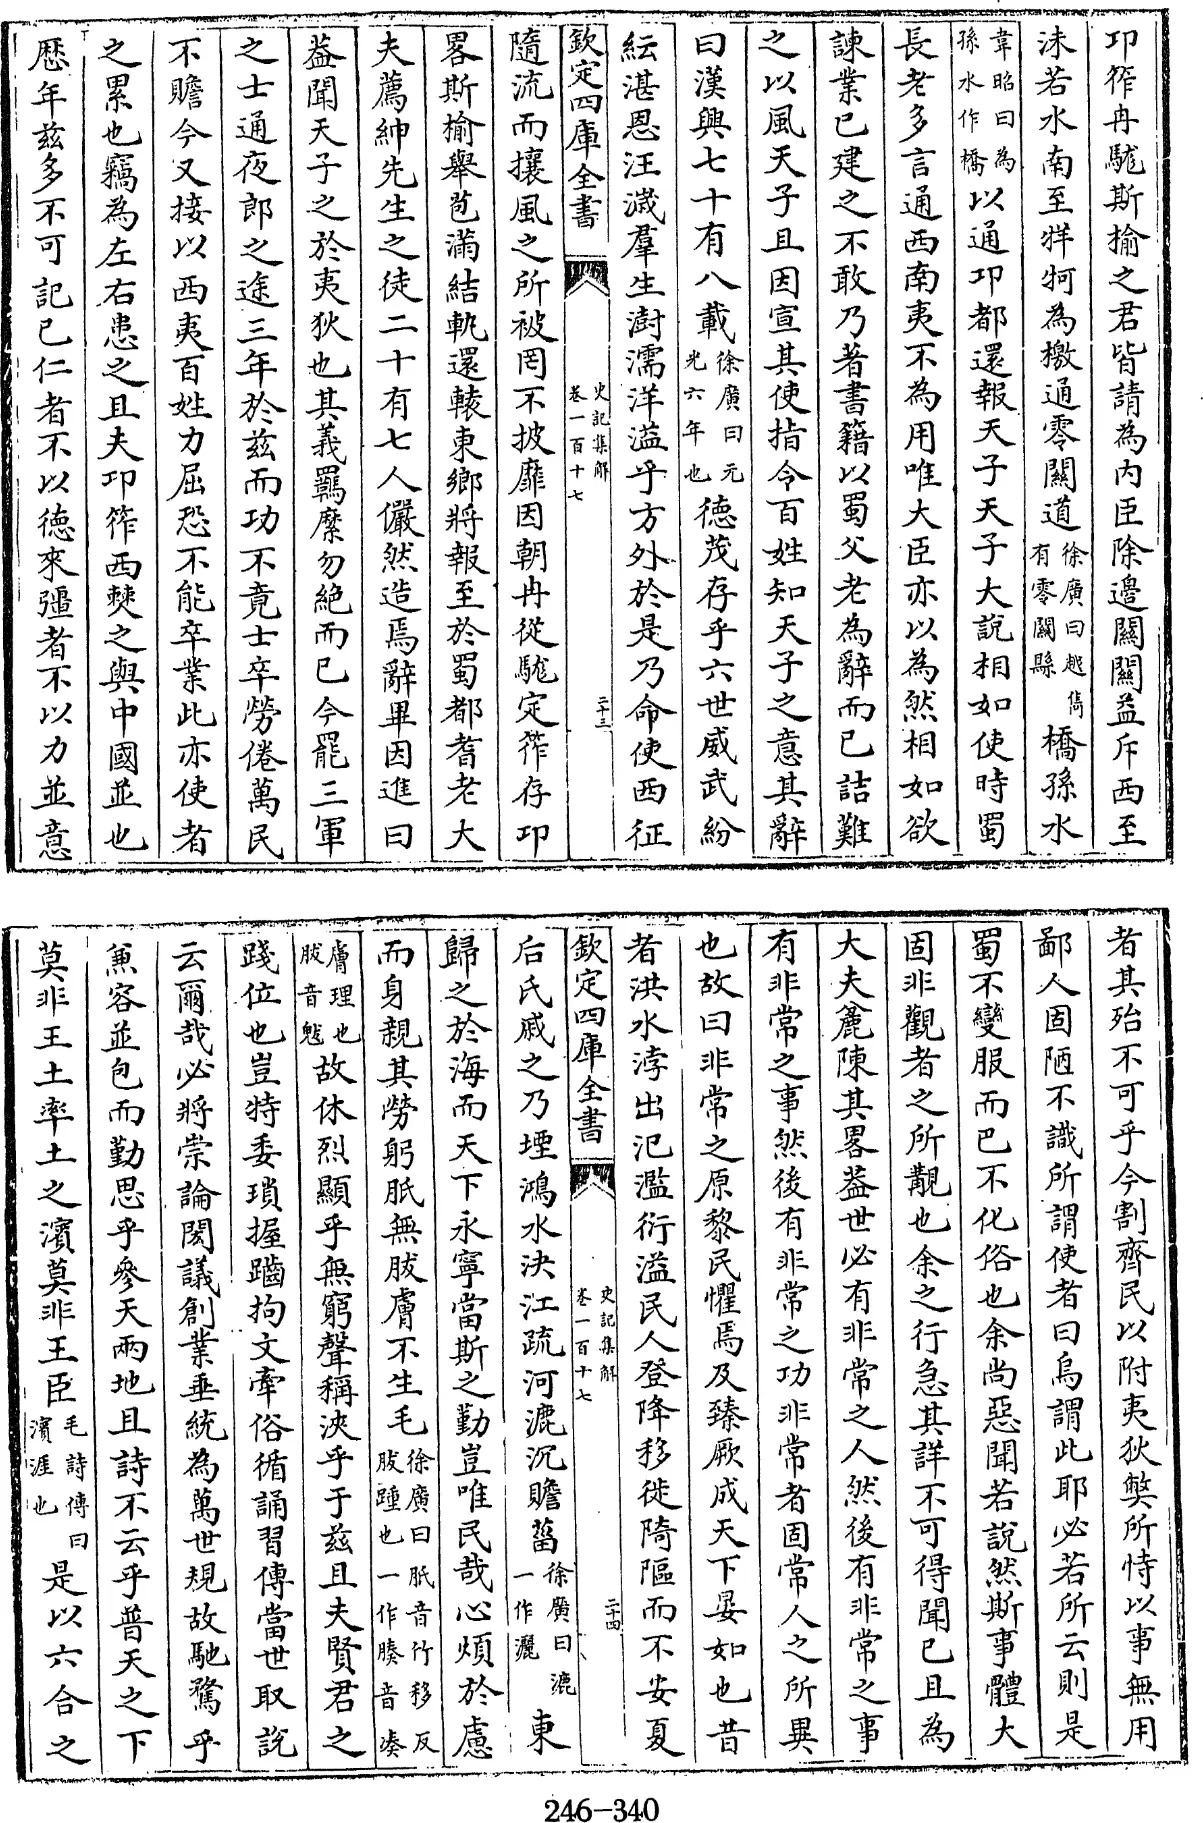 卭筰冉駹斯揄之君皆請為内臣除邉關關益斥西至
沬若水南至牂牁為檄通零關道徐廣曰越雋有零關縣橋孫水
韋昭曰為孫水作橋以通卭都還報天子天子大說相如使時蜀
長老多言通西南夷不為用唯大臣亦以為然相如欲
諫業已建之不敢乃著書籍以蜀父老為辭而已詰難
之以風天子且因宣其使指令百姓知天子之意其辭
曰漢興七十有八載徐廣曰元光六年也德茂存乎六世威武紛
紜湛恩汪濊羣生澍濡洋溢乎方外於是乃命使西征
欽定四庫全書
史記集解
卷一百十七
二十三
隨流而攘風之所被罔不披靡因朝冉從駹定筰存卭
畧斯榆舉苞滿結軌還轅東鄉將報至於蜀都耆老大
夫薦紳先生之徒二十有七人儼然造焉辭畢因進曰
葢聞天子之於夷狄也其義羈縻勿絶而已今罷三軍
之士通夜郎之途三年於兹而功不竟士卒勞倦萬民
不贍今又接以西夷百姓力屈恐不能卒業此亦使者
之累也竊為左右患之且夫卭筰西僰之與中國並也
歴年兹多不可記已仁者不以德來彊者不以力並意
者其殆不可乎今割齊民以附夷狄弊所恃以事無用
鄙人固陋不識所謂使者曰烏謂此耶必若所云則是
蜀不變服而巴不化俗也余尚惡聞若說然斯事體大
固非觀者之所覯也余之行急其詳不可得聞已且為
大夫麄陳其畧葢世必有非常之人然後有非常之事
有非常之事然後有非常之功非常者固常人之所異
也故曰非常之原黎民懼焉及臻厥成天下晏如也昔
者洪水浡出氾濫衍溢民人登降移徙陭嶇而不安夏
欽定四庫全書
史記集解
卷一百十七
二十四
后氏戚之乃堙鴻水決江疏河漉沉贍菑徐廣曰漉一作灑東
歸之於海而天下永寧當斯之勤豈唯民哉心煩於慮
而身親其勞躬胝無胈膚不生毛徐廣曰胝音竹移反胈踵也一作腠音湊
膚理也胈音魃故休烈顯乎無窮聲稱浹乎于兹且夫賢君之
踐位也豈特委瑣握齱拘文牽俗循誦習傳當世取說
云爾哉必將崇論閎議創業垂統為萬世規故馳騖乎
兼容並包而勤思乎參天兩地且詩不云乎普天之下
莫非王土率土之濱莫非王臣毛詩傳曰濱涯也是以六合之
246-340